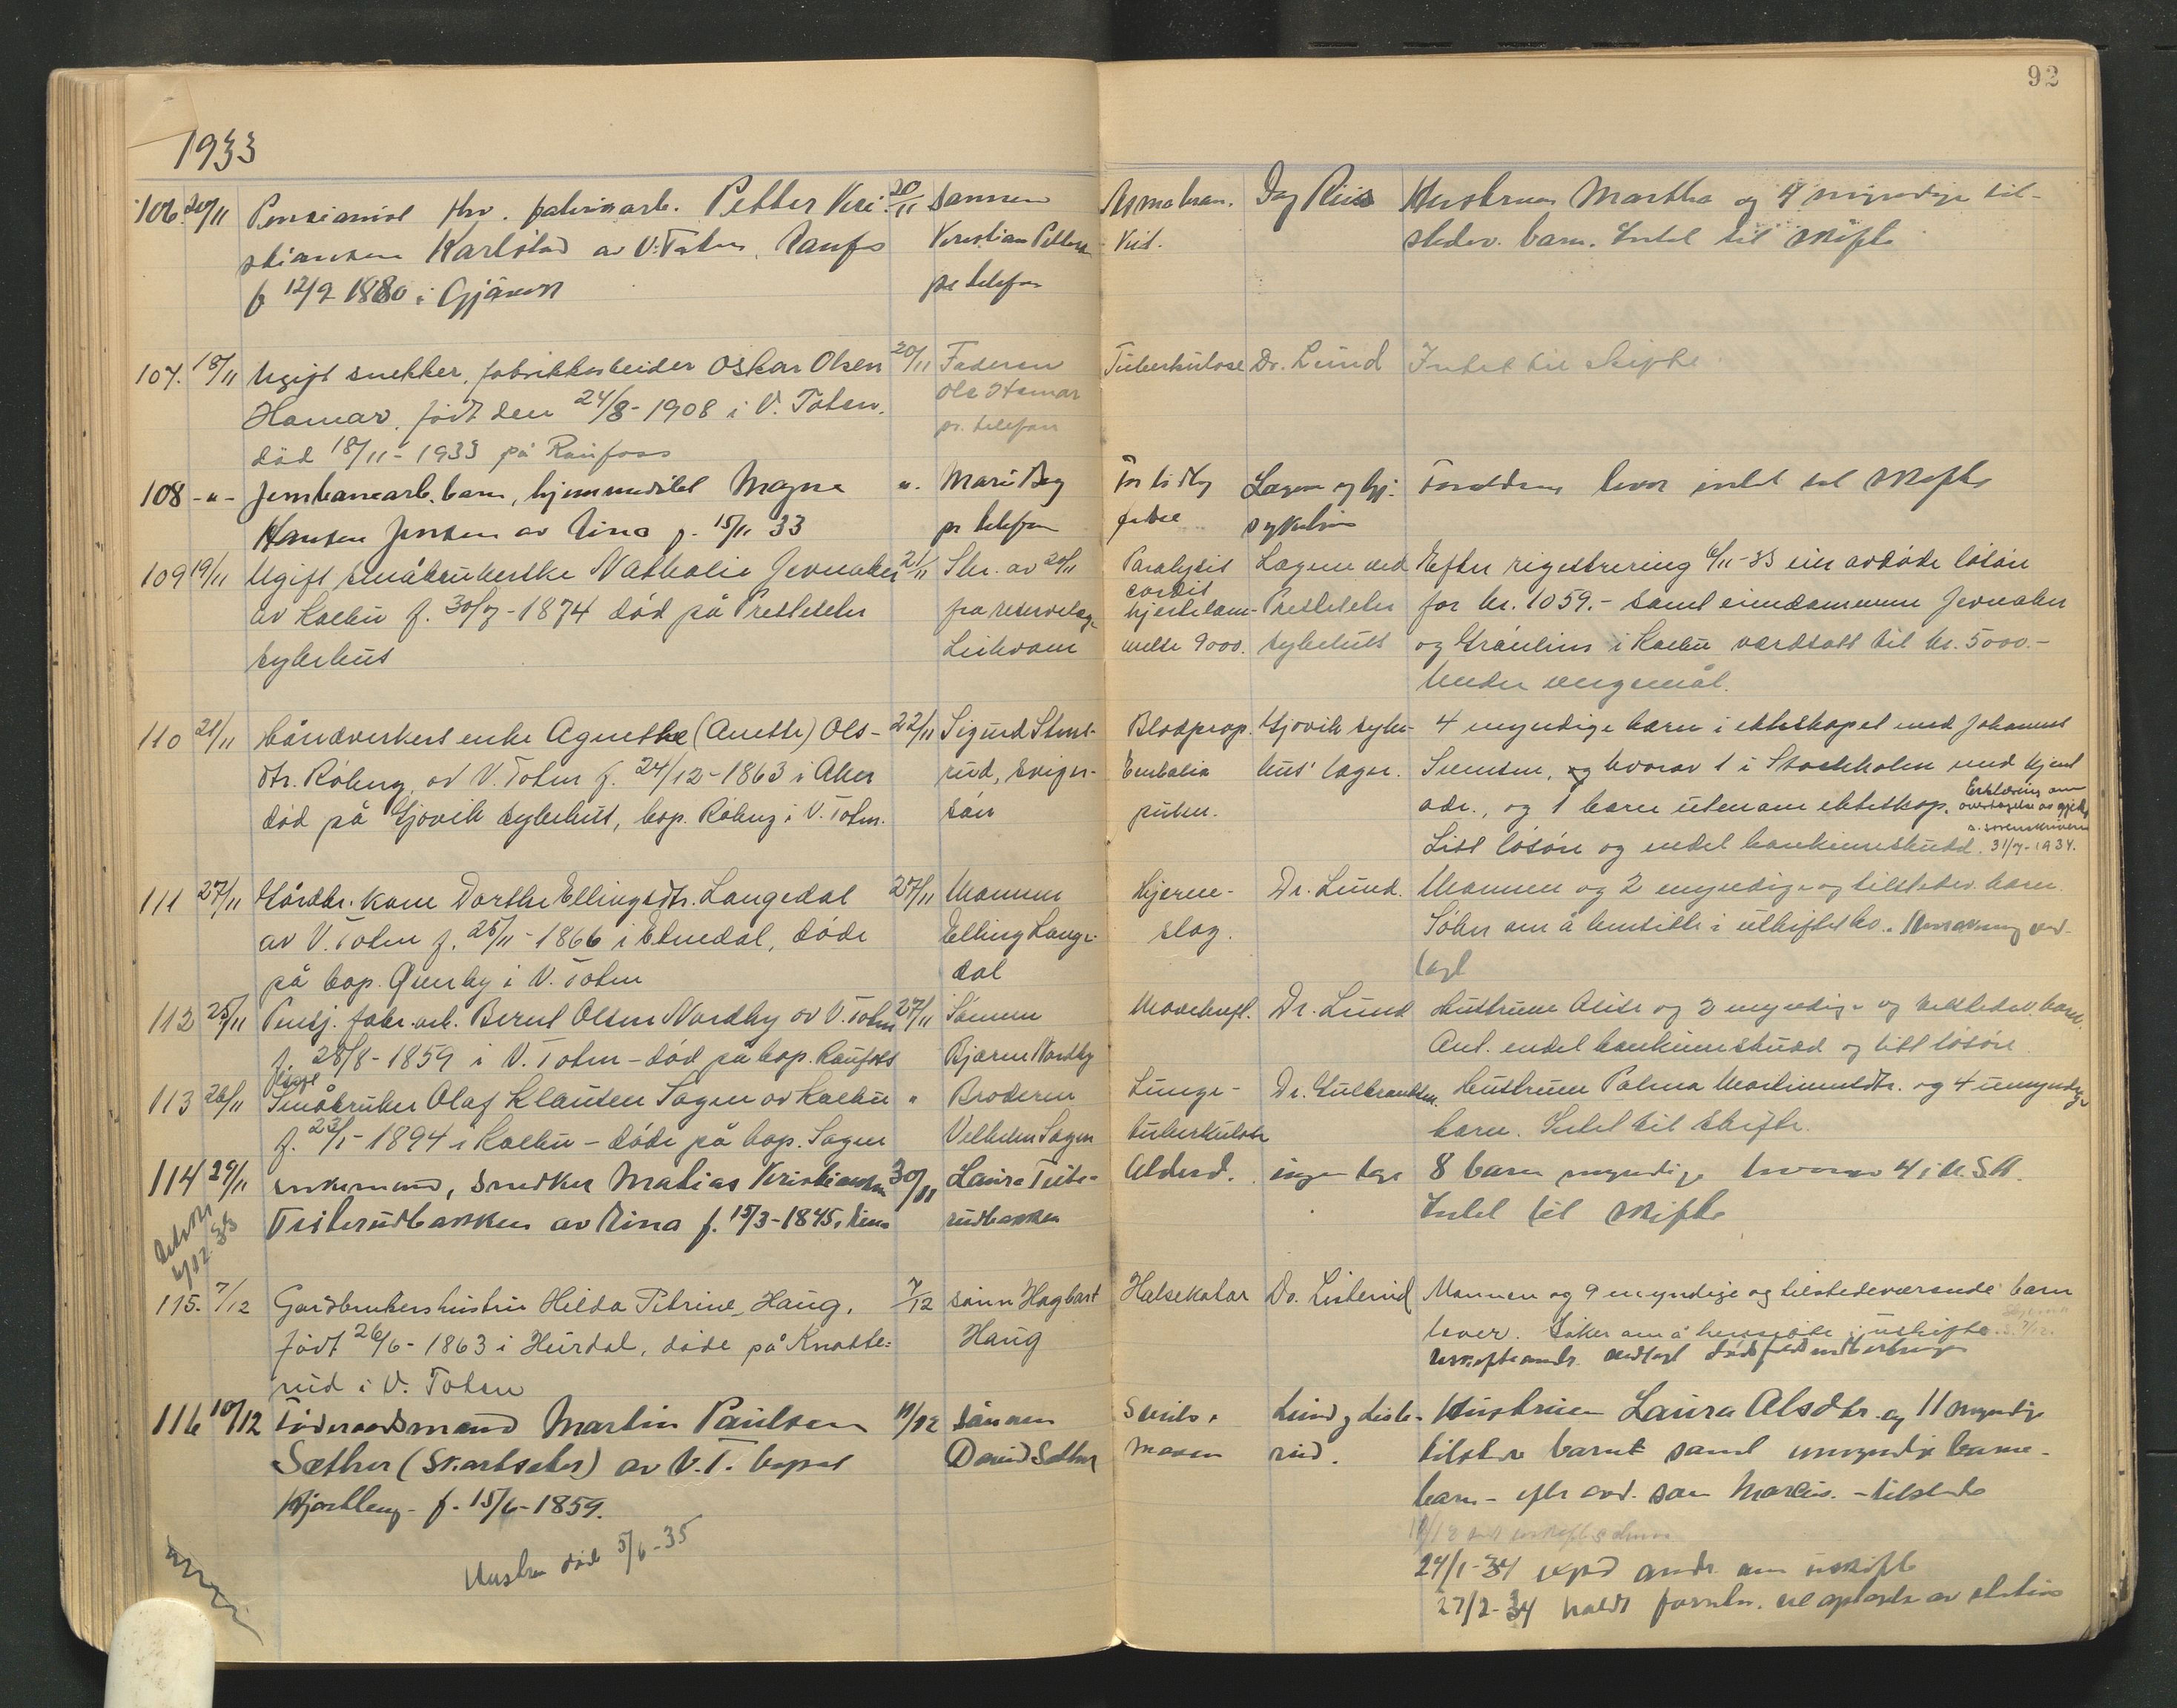 92
1933
106. 20/11 Pensionist fhv. fabrikarb. Petter Kri- 20/11 Sønnen
stiansen Karlstad av V. Toten, Raufos Kristian Petters
f 12/9 1880 i Gjøvik pr telefon
Dag Riis Hustruen Martha og 4 myndige til-
stedev. barn. Intet til skifte
107. 18/11 Ugift snekker, fabrikkarbeider Oskar Olsen 20/11 Faderen Tuberkulose Dr. Lund Intet til skifte.
Hamar, født den 24/8-1908 i V. Toten, Ole Hamar
død 18/11-1933 på Raufoss pr. telefon
108 -"- Jernbanearb. barn, hjemmedøbt Magne ". Marie Bag For tidlig Lægen og Gj. Foreldrene lever intet til skifte
Hansen Jensen av Eina f. 15/11 33 pr telefon fødsel sykehus
109 19/11 Ugift småbrukerske Nathalie Jevnaker 21/11 Skr. av 20/11 Paralysis Lægene ved Efter registrering 6/11-33 eier avdøde løsøre
cordis
av Kolbu f. 30/7-1874 død på Presteseter fra reservelæge hjertelam- Presteseter for kr. 1059.- samt eiendommene Jevnaker
sykehus Leikvam melse sykehus og Gråulius i Kolbu verdsatt til kr. 5000.-
Under vergemål.
110 21/11 Håndverkers enke Agnethe (Anette) Ols- 22/11 Sigurd Stens- Blodprop. Gjøvik syke- 4 myndige barn i ekteskapet med Johannes
dtr. Røberg, av V. Toten f. 24/12-1863 i Aker rud, sviger- Embolia hus' læger. Svendsen, og hvorav 1 i Stockholm med kjent
død på Gjøvik sykehus, bop. Røberg i V. Toten. søn pulm. adr., og 1 barn utenom ekteskap. Erklæring om
overtagelse av gjeld
s. sorenskriveren
Litt løsøre og endel bankinnskudd. 31/7-1934.
111 27/11 Gårdbr. kone Dorthe Ellingsdtr. Langedal 27/11 Mannen Hjerne- Dr. Lund. Mannen og 2 myndige og tilstedev. barn.
av V. Toten f. 25/11-1866 i Etnedal, døde Elling Lange- slag. Søker om å hensitte i uskiftet bo.
på bop. Querby i V. Toten dal
112 25/11 Pensj. fabr. arb. Bernt Olsen Nordby av V. Toten 27/11 Sønnen Dr. Lund Hustruen Olise og 2 myndige og tilstedev. barn.
f. 28/8-1859 i V. Toten - død på bop. Raufoss Bjarne Nordby Ant. endel bankinnskudd og litt løsøre.
113 26/11 Småbruker Olaf Klausen Sagen av Kolbu " Broderen Lunge- Dr. Gulbrandsen. Hustruen Palma Martinusdtr. og 4 umyndige
f. 23/1-1894 i Kolbu - døde på bop. Sagen Velhelm Sagen tuberkulose barn. Intet til skifte.
114 29/11 Enkemand, snedker Matias Kristiansen 30/11 Laura Teite- Alderd. ingen læge 8 barn myndige hvorav 4 i U.S.A.
Teiterudbakken av Eina f. 15/3-1845 i Eina rudbakken Intet til skifte
115. 7/12 Gardbrukershustru Hilda Petrine Haug, 7/12 sønn Hagbart Halsekatar Dr. Listerud Mannen og 9 myndige og tilstedeværende barn
født 26/6-1863 i Hurdal, døde på Knatte- Haug lever. Søker om å hensidde i uskifte.
rud i V. Toten
116 10/12 Føderaadsmand Martin Paulsen 11/12 Sønnen Lund og Liste- Hustruen Laura Olsdtr. og 11 myndige
Sæther (Skartseter) av V.T. bopæl David Sæther rud. tilstede barn samt umyndige barne-
f. 15/6-1859. barn - efter avd. søn - tilstede
24/1-34 om uskifte
27/2-34
Hustru død 5/6-35